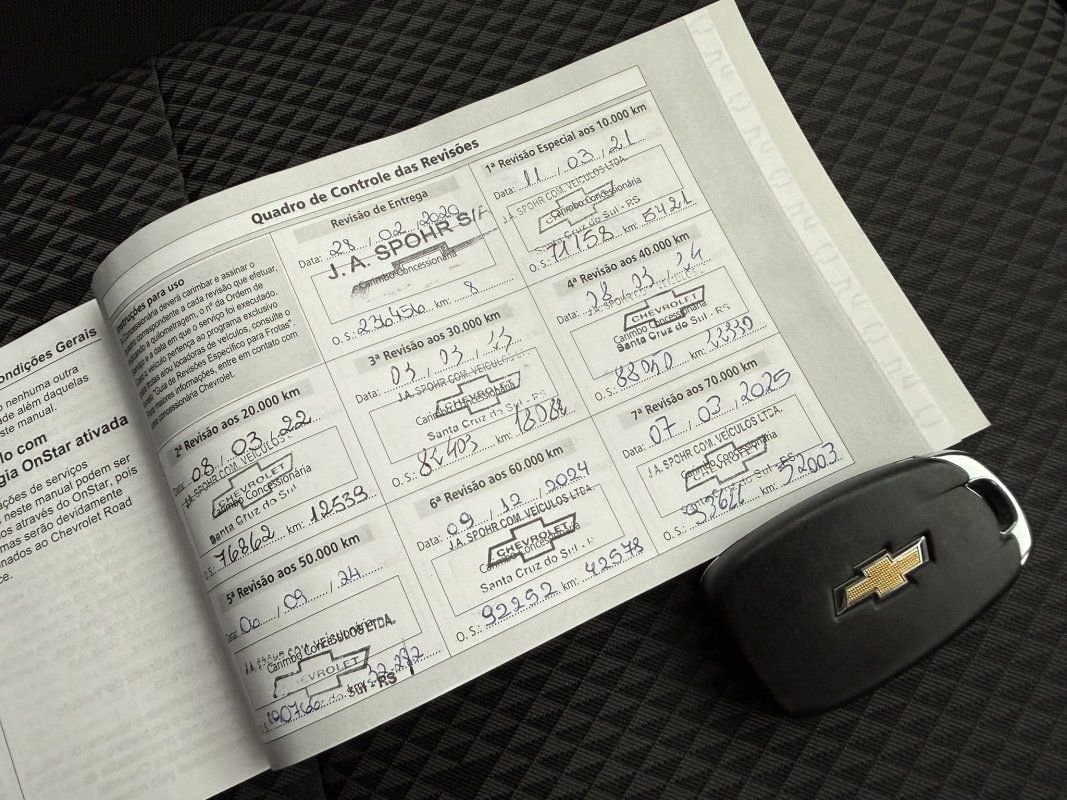 ondições Gerais
o nenhuma outra
dade além daquelas
ste manual.
lo com
gia OnStar ativada
ações de serviços
neste manual podem ser
os através do OnStar, pois
mas serão devidamente
nados ao Chevrolet Road
ce.
Quadro de Controle das Revisões
Instruções para uso
A concessionária deverá carimbar e assinar o
quadro correspondente a cada revisão que efetuar,
indicando a quilometragem, o nº da Ordem de
Serviço e a data em que o serviço foi executado.
Caso o veículo pertença ao programa exclusivo
para frotas e/ou locadoras de veículos, consulte o
livreto "Guia de Revisões Específico para Frotas".
Para maiores informações, entre em contato com
uma concessionária Chevrolet.
Revisão de Entrega
Data: 28 / 02 / 2020
J. A. SPOHR S/A
Carimbo Concessionária
O. S.: 236456 km: 8
1ª Revisão Especial aos 10.000 km
Data: 11 / 03 / 21
J.A. SPOHR COM. VEÍCULOS LTDA.
Carimbo Concessionária
Santa Cruz do Sul - RS
O. S.: 71158 km: 5421
2ª Revisão aos 20.000 km
Data: 08 / 03 / 22
J.A. SPOHR COM. VEÍCULOS
CHEVROLET
Carimbo Concessionária
Santa Cruz do Sul
O. S.: 76862 km: 12539
3ª Revisão aos 30.000 km
Data: 03 / 03 /
J.A. SPOHR COM. VEÍCULOS
CHEVROLET
Carimbo Concessionária
Santa Cruz do Sul - RS
O. S.: 82403 km:
4ª Revisão aos 40.000 km
Data: 08 / 03 / 24
J.A. SPOHR COM.
CHEVROLET
Carimbo Concessionária
Santa Cruz do Sul - RS
O. S.: 88050 km:
5ª Revisão aos 50.000 km
Data: / 09 / 24
J.A. SPOHR COM. VEÍCULOS LTDA.
Carimbo Concessionária
CHEVROLET
do Sul - RS
O. S.: 90760 km:
6ª Revisão aos 60.000 km
Data: 09 / 12 / 2024
J.A. SPOHR COM. VEÍCULOS LTDA.
CHEVROLET
Carimbo Concessionária
Santa Cruz do Sul -
O. S.: 92292 km: 42578
7ª Revisão aos 70.000 km
Data: 07 / 03 / 2025
J.A. SPOHR COM. VEÍCULOS LTDA.
Carimbo Concessionária
CHEVROLET
Santa Cruz do Sul - RS
O. S.: km: 52003